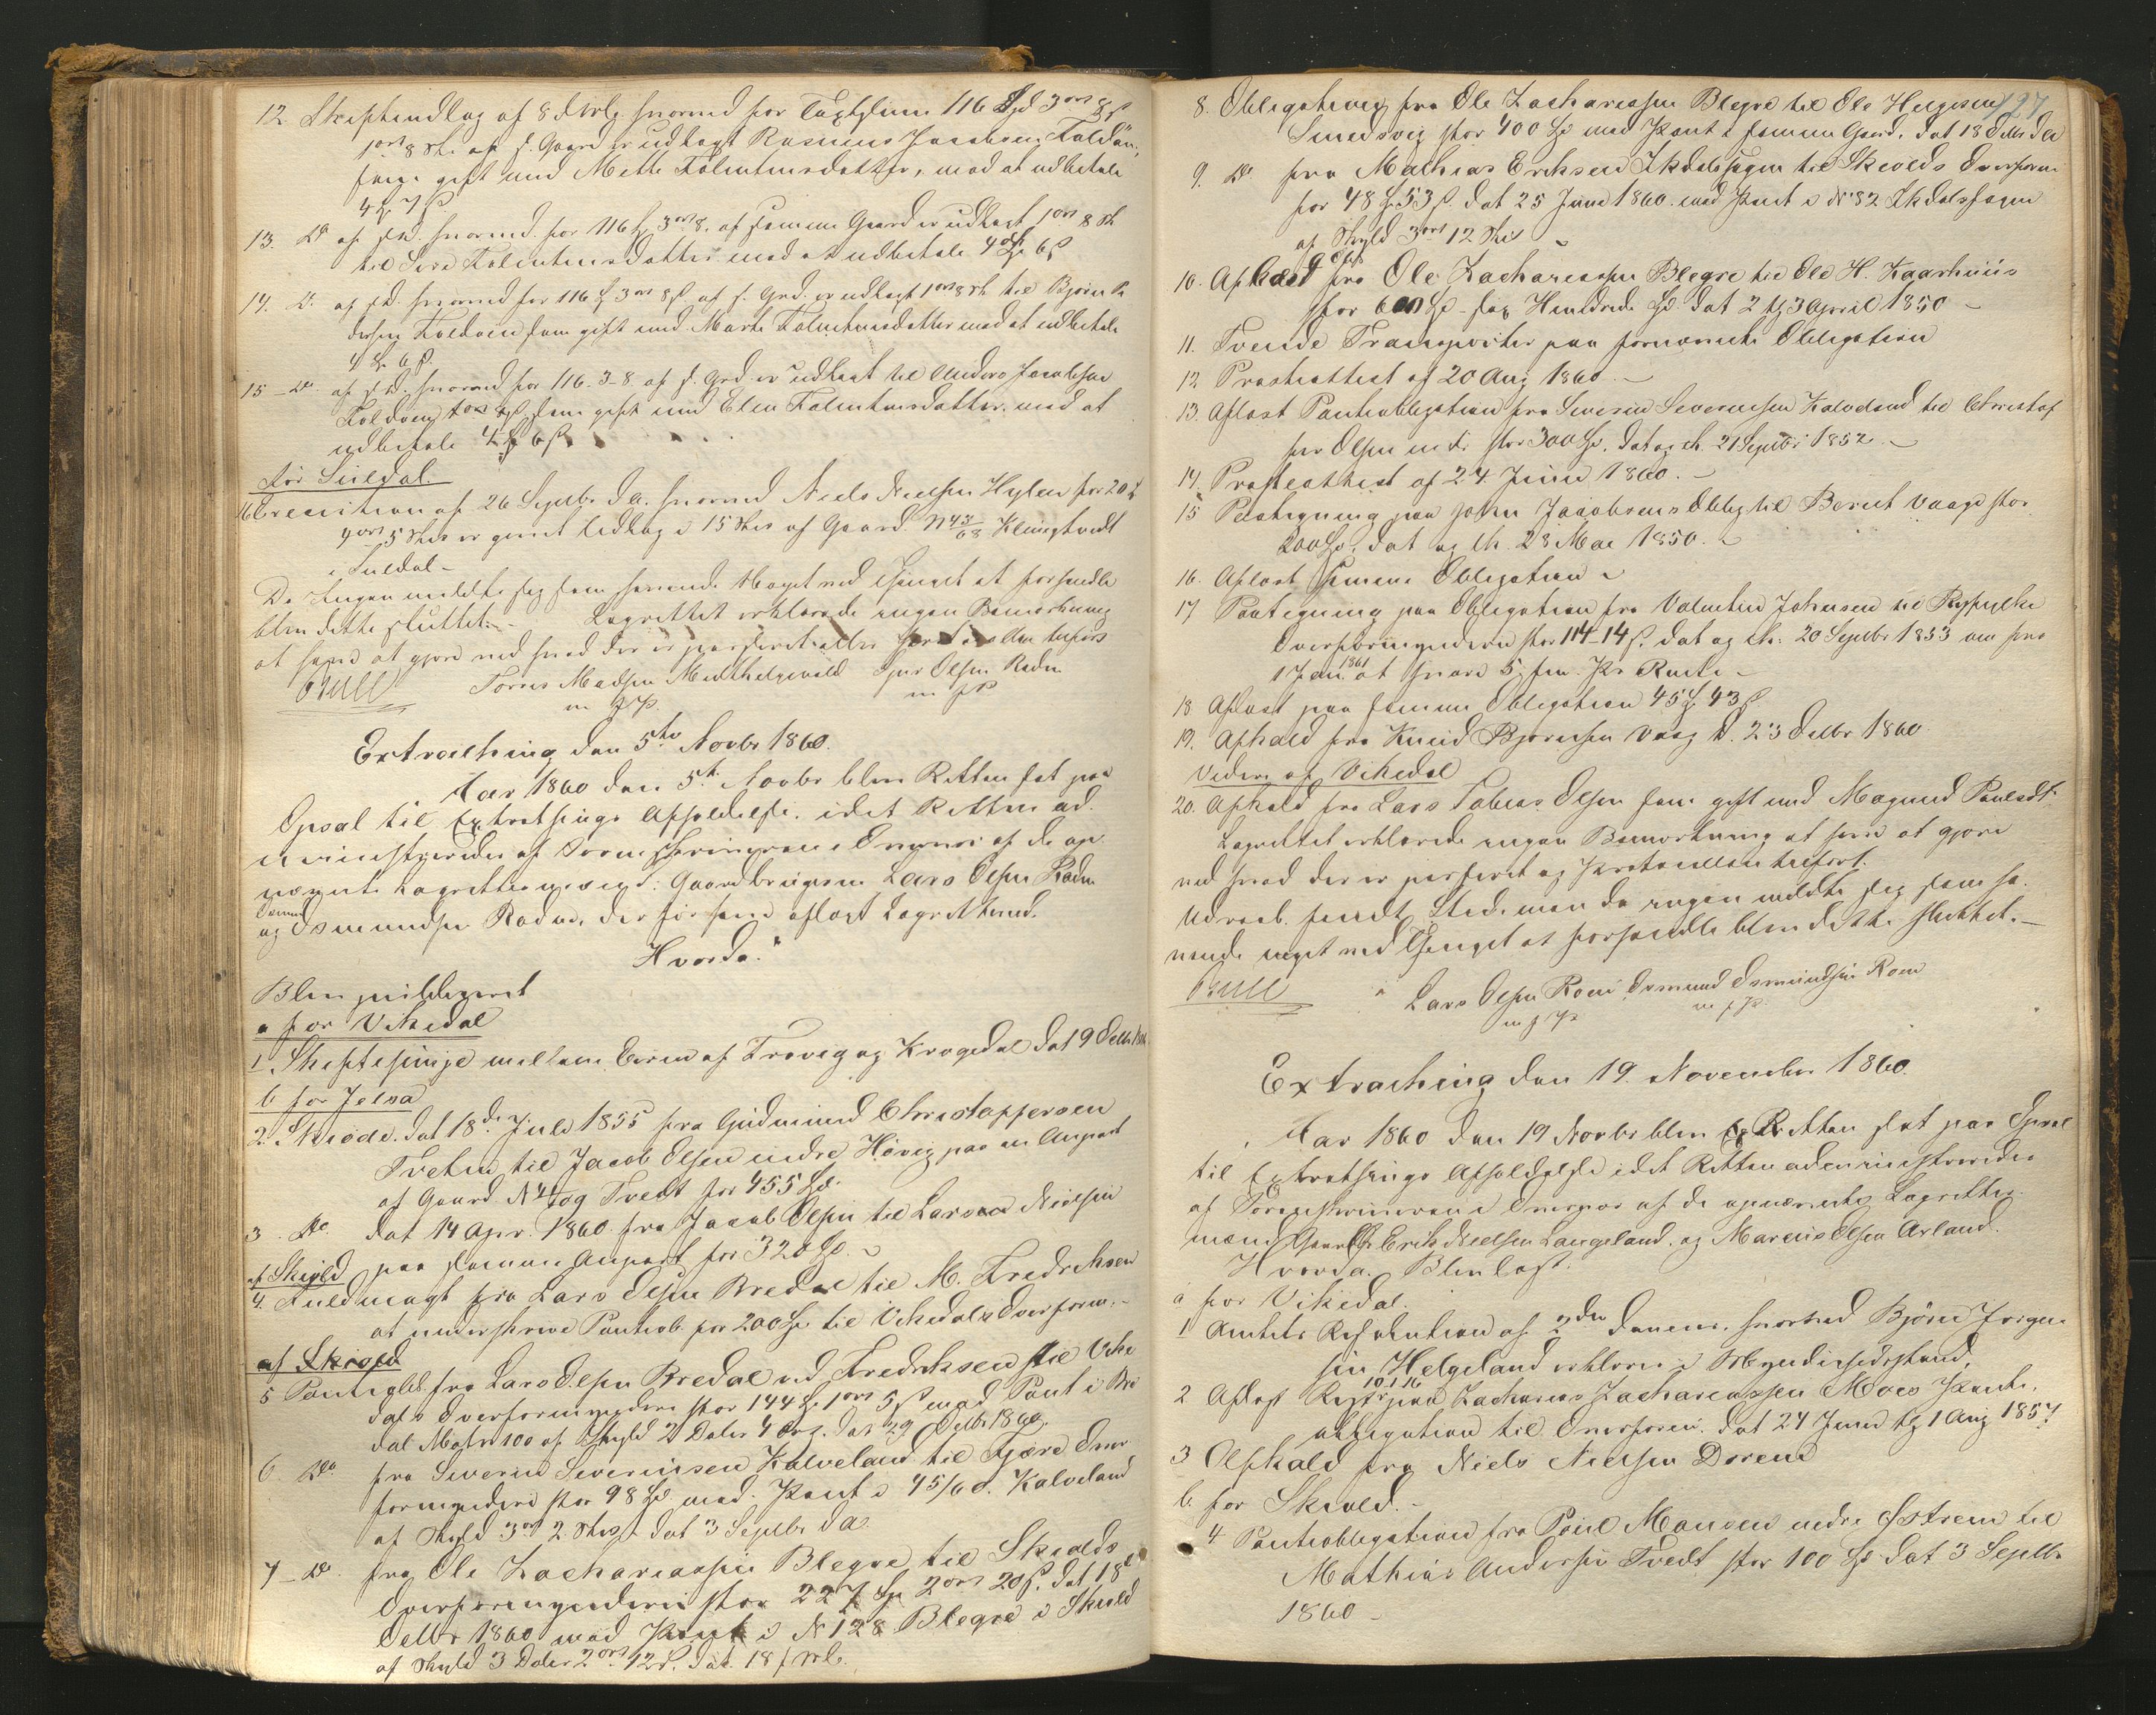 12. Skifteudlæg af 8 d. Mts, hvorved for Taxtsum 116 Spd 3 ort 8 ß
1 ort 8 sk. af s. Gaard er udlagt Rasmus Jacobsen Foldøen,
som gift med Mette Tolumnsdatter, mod at udbetale
4 Spd 7 ß.
13. Do af s. d. hvorved for 116 Spd 3 ort 8. af samme Gaard er udlagt 1 ort 8 sk
til Siri Tolumnsdatter mod at udbetale 4 Spd 6 ß
14. Do af s. d. hvorved for 116 Spd 3 ort 8 ß af s. Grd. er udlagt 1 ort 8 sk til Bjørn
Foldøen som gift med Marte Tolumnsdatter mod at udbetale
4 Spd 6 ß.
15 - Do af s. d. hvorved for 116-3-8. af s. Grd. er udlagt til Anders Jacobsen
Foldøen 1 ort 8 ß, som gift med Elen Tolumnsdatter, mod at
udbetale 4 Spd 6 ß
for Suldal.
af 26 Septbr d. A. hvorved Niels Nielsen Hylen for 20
4 ort 5 Skil er gjort Udlæg i 15 Skil af Gaard N 43/68 Klungtvedt
i Suledal -
Da Ingen meldte sig som havende Noget ved Thinget at forhandle
blev dette sluttet. - Lagrettet erklærede ingen Bemærkning
at have at gjøre ved hvad der er passeret
Bull Torris Madsen Mehthelgevold Sjur Olsen Rødne
m f P. m f P
Extrathing den 5te Novbr 1860.
Aar 1860 den 5te Novbr blev Retten sat paa
Opsal til Extrathings Afholdelse, idet Retten ad-
ministreredes af Sorenskriveren i Overvær af de op-
nævnte Lagrettesmænd: Gaardbrugerne Lars Olsen Rødne
og Osmund Osmundsen Rødne, der før have aflagt Lagretteed.
Hvorda:
Blev publiceret
a for Vikedal
1 Skifteforlig mellem Eierne af Trovig og Krogedal dat 9 Octbr 1860
b for Jelsa
2. Skiøde, dat 18de Juli 1855 fra Gudmund Christophersen
Tveten til Jacob Olsen indre Høvig paa en Anpart
af Gaard N 4 og Tvedt for 455 Spd.
3. Do dat 14 Apr. 1860 fra Jacob Olsen til Lars Nielsen
paa samme Anpart for 320 Spd.
af Skjold
4. Fuldmagt fra Lars Olsen Bredal til M. Fredriksen
at underskrive Panteob. for 200 Spd til Vikedals Overform.-
af Skiold
5 Panteobl. fra Lars Olsen Bredal ved Fredriksen til Vike-
dals Overformynderi stor 144 Spd 1 ort 5 ß med Pant i Bre-
dal Matr 100 af Skyld 2 Daler 4 ort. dat 29 Octbr 1860.
6. Do fra Severin Severinsen Kalveland til Tjære Over-
formynderi stor 98 Spd med Pant i 45/60. Kalveland
af Skyld 3 ort 2 Skil dat 3 Septbr d A.
7 - Do. fra Ole Zachariassen Blegre til Skjolds
Overformynderi stor 227 Spd 2 ort 20 ß. dat 18de
Octbr 1860 med Pant i N 128 Blegre i Skiold
af Skyld 3 Daler 2 ort 12 ß. dat 18 f. M.
197
8. Obligation fra Ole Zachariassen Blegre til Ole Helgesen
Smedsvig stor 400 Spd med Pant i samme Gaard, dat 18 Octbr d A
9. Do fra Mathias Eriksen Ilkdalshagen til Skiolds Overform.
for 48 Spd 53 ß. dat 25 Juni 1860. med Pant i N 82 Ilkdalshagen
af Skyld 3 ort 12 Skil
10. Afkald fra Ole Zachariassen Blegre til Ole H. Kaarhuus
stor 600 Spd - sex Hundrede Spd dat 2 tgl 3 April 1850 -
11. Tvende Transporter paa fornævnte Obligation
12. Presteattest af 20 Aug 1860. -
13. Aflæst Panteobligation fra Severin Severinsen Kalveland til Christof-
fer Olsen stor 300 Spd, dat og th. 21 Septbr 1852. -
14. Presteattest af 24 Juni 1860. -
15 Paategning paa John Jacobsens Oblig. til Berent Vaage stor
200 Spd, dat og th. 28 Mai 1850.
16. Aflæst samme Obligation
17 Paategning paa Obligation fra Valentin Johnsen til Ryfylke
Overformynderi stor 114-14 ß. dat og th. 20 Septbr 1853 om fra
1 Jan. 1861 at svare 5, fem Pr. Rente -
18 Aflæst paa samme Obligation 45 Spd 43 ß
19. Afkald fra Knud Bjørnsen Vaag d. 23 Octbr 1860
Videre af Vikedal
20. Afkald fra Lars Tobias Olsen som gift med Magund Paulsdtr
Lagrettet erklærede ingen Bemærkning at have at gjøre
ved hvad der er passeret og Protocollen tilført.
Udraab fandt Sted, men da ingen meldte sig som ha-
vende noget ved Thinget at forhandle blev dette sluttet. -
Bull Lars Olsen Rønne Osmund Osmundsen Rønne
m f P m f P.
Extrathing den 19. November 1860.
Aar 1860 den 19 Novbr blev Retten sat paa Opsal
til Extrathings Afholdelse idet Retten administreredes
af Sorenskriveren i Overvær af de opnævnte Lagrettes-
mænd Gaardbr Erik Nielsen Langeland og Marcus Olsen Arland.
Hvorda. Blev læst:
a for Vikedal.
1 Amtets Resolution af 2den dennes hvorved Bjørn Jørgen-
sen Helgeland erklæres i Myndighedsstand,
2 Aflæst Zacharias Zachariassen Moes Pante-
obligation til Overform. dat 24 Juni tgl 1 Aug 1857
3 Afkald fra Niels Nielsen Dorene
b. for Skiold. -
4 Panteobligation fra Poul Monsen nedre Østrem til
Mathias Andersen Tvedt stor 100 Spd dat 3 Septbr
1860 -